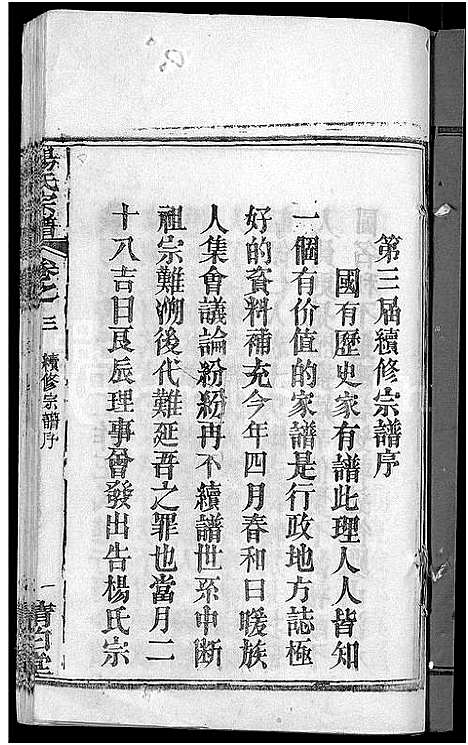 第三屆續修宗譜序
國有歷史家有譜此理人人皆知
一個有价值的家譜是行政地方誌極
好的資料補充今年四月春和日暖族
人集會議論紛紛再不續譜世系中断
祖宗難溯後代難延吾之罪也當月二
十八吉日良辰理事會發出告楊氏宗
楊氏宗譜
卷之三
續修宗譜序
一
清白堂